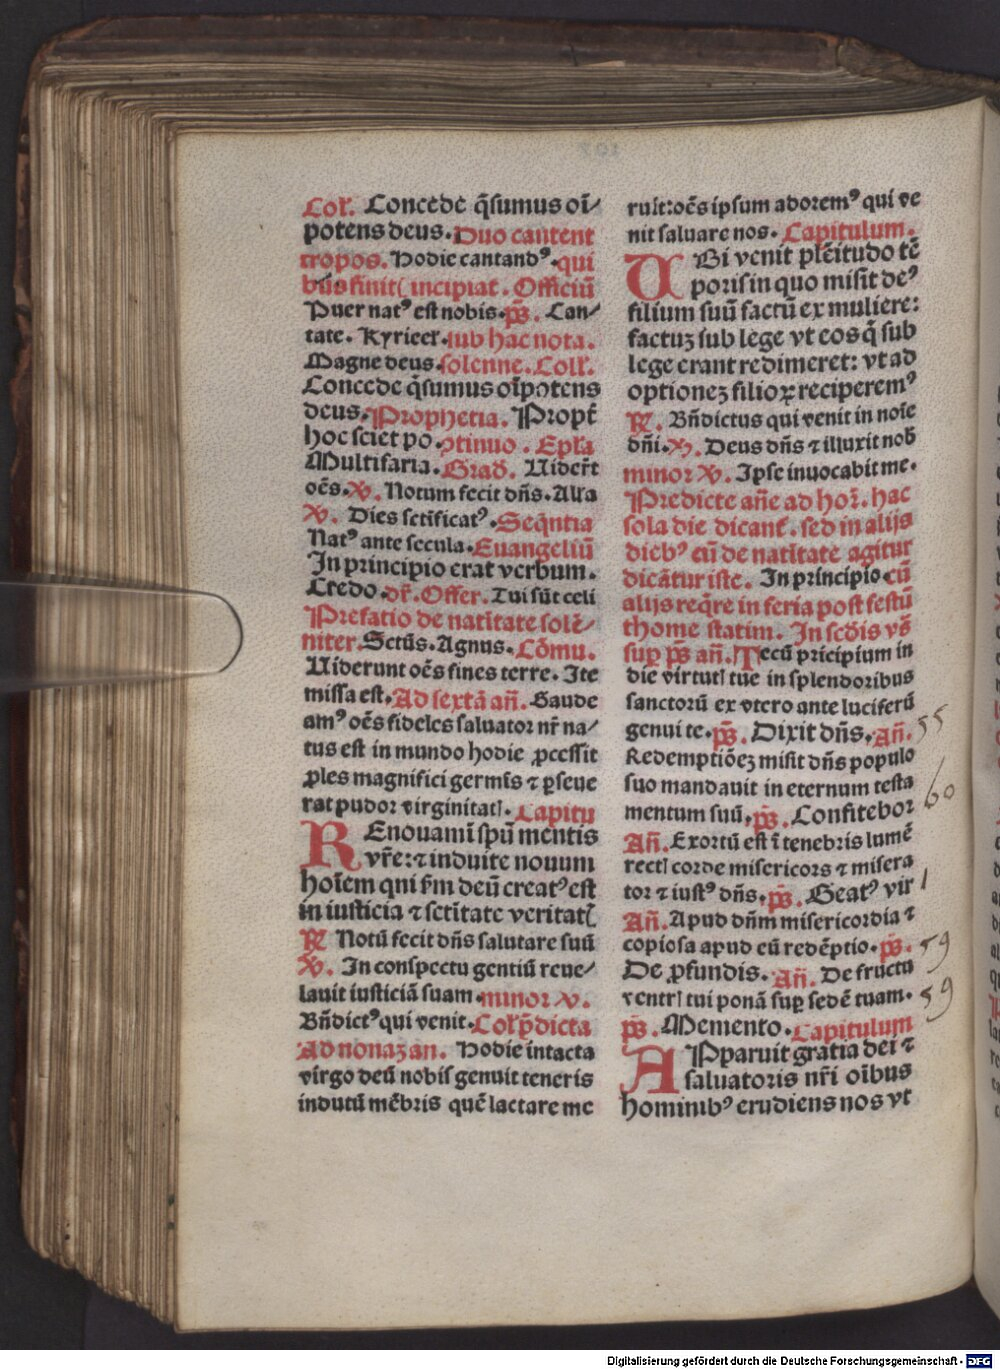 Coll̄. Concede q̄sumus oī⸗
potens deus. Duo cantent
tropos. Hodie cantandꝰ. qui
bus finit incipiat. Officiū
Puer natꝰ est nobis. ps̄. Can⸗
tate. Kyrieel. sub hac nota.
Magne deus. solenne. Coll̄.
Concede q̄sumus oīpotens
deus. Prophetia. Propt̄
hoc sciet po. ꝯtinuo. Ep̄la
Multifaria. Grad̄. Vider̄t
oēs. V̄. Notum fecit dn̄s. All'a
V̄. Dies sctificatꝰ. Seq̄ntia
Natꝰ ante secula. Euangeliū
In principio erat verbum.
Credo. dr̄. Offer. Tui sūt celi
Prefatio de natītate solē⸗
niter. Sctūs. Agnus. Cōmu.
Viderunt oēs fines terre. Ite
missa est. Ad sextā an̄. Gaude
amꝰ oēs fideles saluator nr̄ na⸗
tus est in mundo hodie ꝓcessit
ꝓles magnifici germīs ⁊ ꝑseue
rat pudor virginitatꝭ. Capitu
REnouamī spū mentis
vr̄e: ⁊ induite nouum
hoīem qui ẜm deū creatꝰ est
in iusticia ⁊ sctītate veritatꝭ
R̄ Notū fecit dn̄s salutare suū
V̄. In conspectu gentiū reue⸗
lauit iusticiā suam. minor V̄.
Bn̄dictꝰ qui venit. Coll̄ p̄dicta
Ad nonaz an. Hodie intacta
virgo deū nobis genuit teneris
indutū mēbris quē lactare me
ruit: oēs ipsum adoremꝰ qui ve
nit saluare nos. Capitulum.
UBi venit plēitudo tē
poris in quo misit deꝰ
filium suū factū ex muliere:
factuȝ sub lege vt eos q̄ sub
lege erant redimeret: vt ad
optioneȝ filioꝝ reciperemꝰ
R̄. Bn̄dictus qui venit in noīe
dn̄i. V̄. Deus dn̄s ⁊ illuxit nob̄
minor V̄. Ipse inuocabit me.
Predicte an̄e ad hor̄. hac
sola die dicant̄. sed in alijs
diebꝰ cū de natītate agitur
dicātur iste. In principio. cū
alijs req̄re in feria post festū
thome statim. In scd̄is vs̄
suꝑ ps̄ an̄. Tecū pricipium in
die virtutꝭ tue in splendoribus
sanctorū ex vtero ante luciferū
genui te. ps̄. Dixit dn̄s. An̄. 55
Redemptiōeȝ misit dn̄s populo
suo mandauit in eternum testa 60
mentum suū. ps̄. Confitebor
An̄. Exortū est ī tenebris lumē
rectꝭ corde misericors ⁊ misera
tor ⁊ iustꝰ dn̄s. ps̄. Beatꝰ vir 1
An̄. Apud dn̄m misericordia ⁊
copiosa apud eū redēptio. ps̄. 59
De ꝓfundis. An̄. De fructu
ventrꝭ tui ponā suꝑ sedē tuam. 59
ps̄. Memento. Capitulum
APparuit gratia dei ⁊
saluatoris nr̄i oībus
hominibꝰ erudiens nos vt
Digitalisierung gefördert durch die Deutsche Forschungsgemeinschaft - DFG